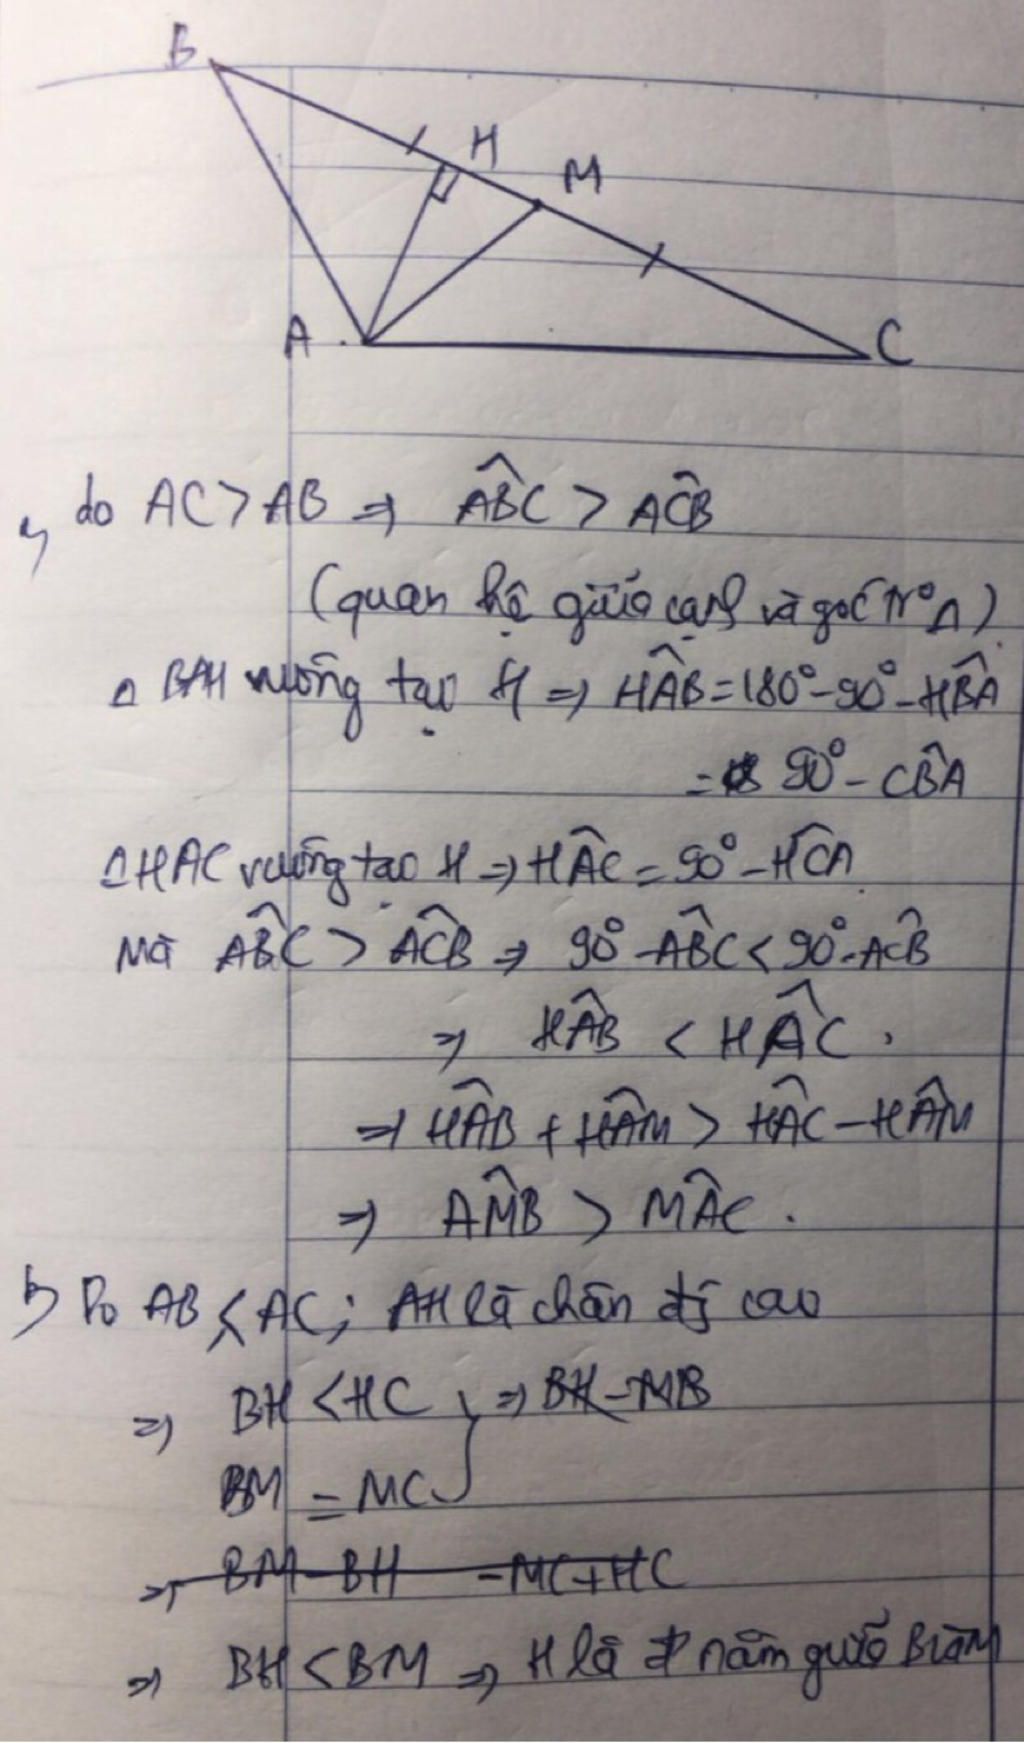 B
H
M
A
C
a, do AC > AB ⇒ \widehat{ABC} > \widehat{ACB}
(quan hệ giữa cạnh và góc tr° Δ)
Δ BAH vuông tại H ⇒ \widehat{HAB} = 180° - 90° - \widehat{HBA}
= 90° - \widehat{CBA}
Δ HAC vuông tại H ⇒ \widehat{HAC} = 90° - \widehat{HCA}
Mà \widehat{ABC} > \widehat{ACB} ⇒ 90° - \widehat{ABC} < 90° - \widehat{ACB}
⇒ \widehat{HAB} < \widehat{HAC} .
⇒ \widehat{HAB} + \widehat{HAM} > \widehat{HAC} - \widehat{HAM}
⇒ \widehat{AMB} > \widehat{MAC} .
b, Do AB < AC ; AH là chân cao
⇒ BH < HC } ⇒ BH - MB
BM = MC
⇒ BM - BH = MC + HC
⇒ BH < BM ⇒ H là đ nằm giữa B và M